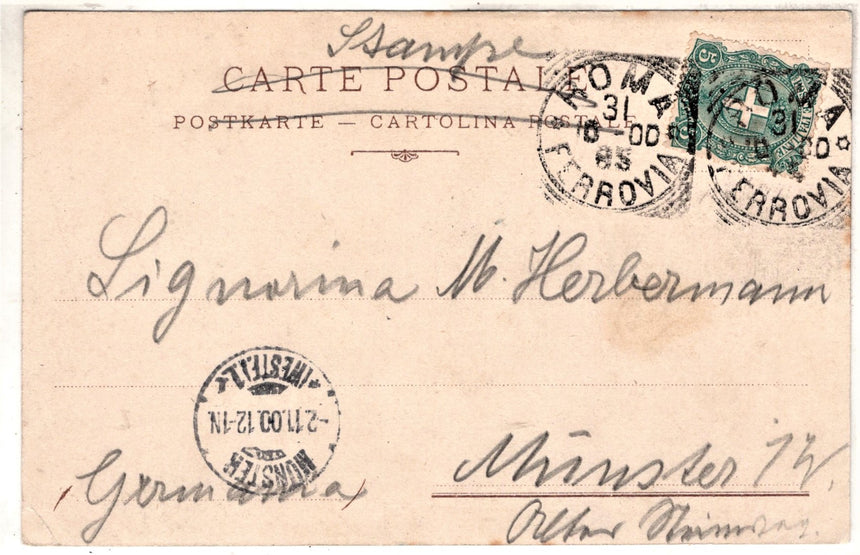 Stampe
CARTE POSTALE
POSTKARTE — CARTOLINA POSTALE
5
ROMA
31
10-00
85
FERROVIA
ROMA
31
10-00
FERROVIA
Signorina M. Herbermann
MÜNSTER
-2.11.00.12-1N.
(WESTF.) 1
Münster i/W.
Germania
Alter